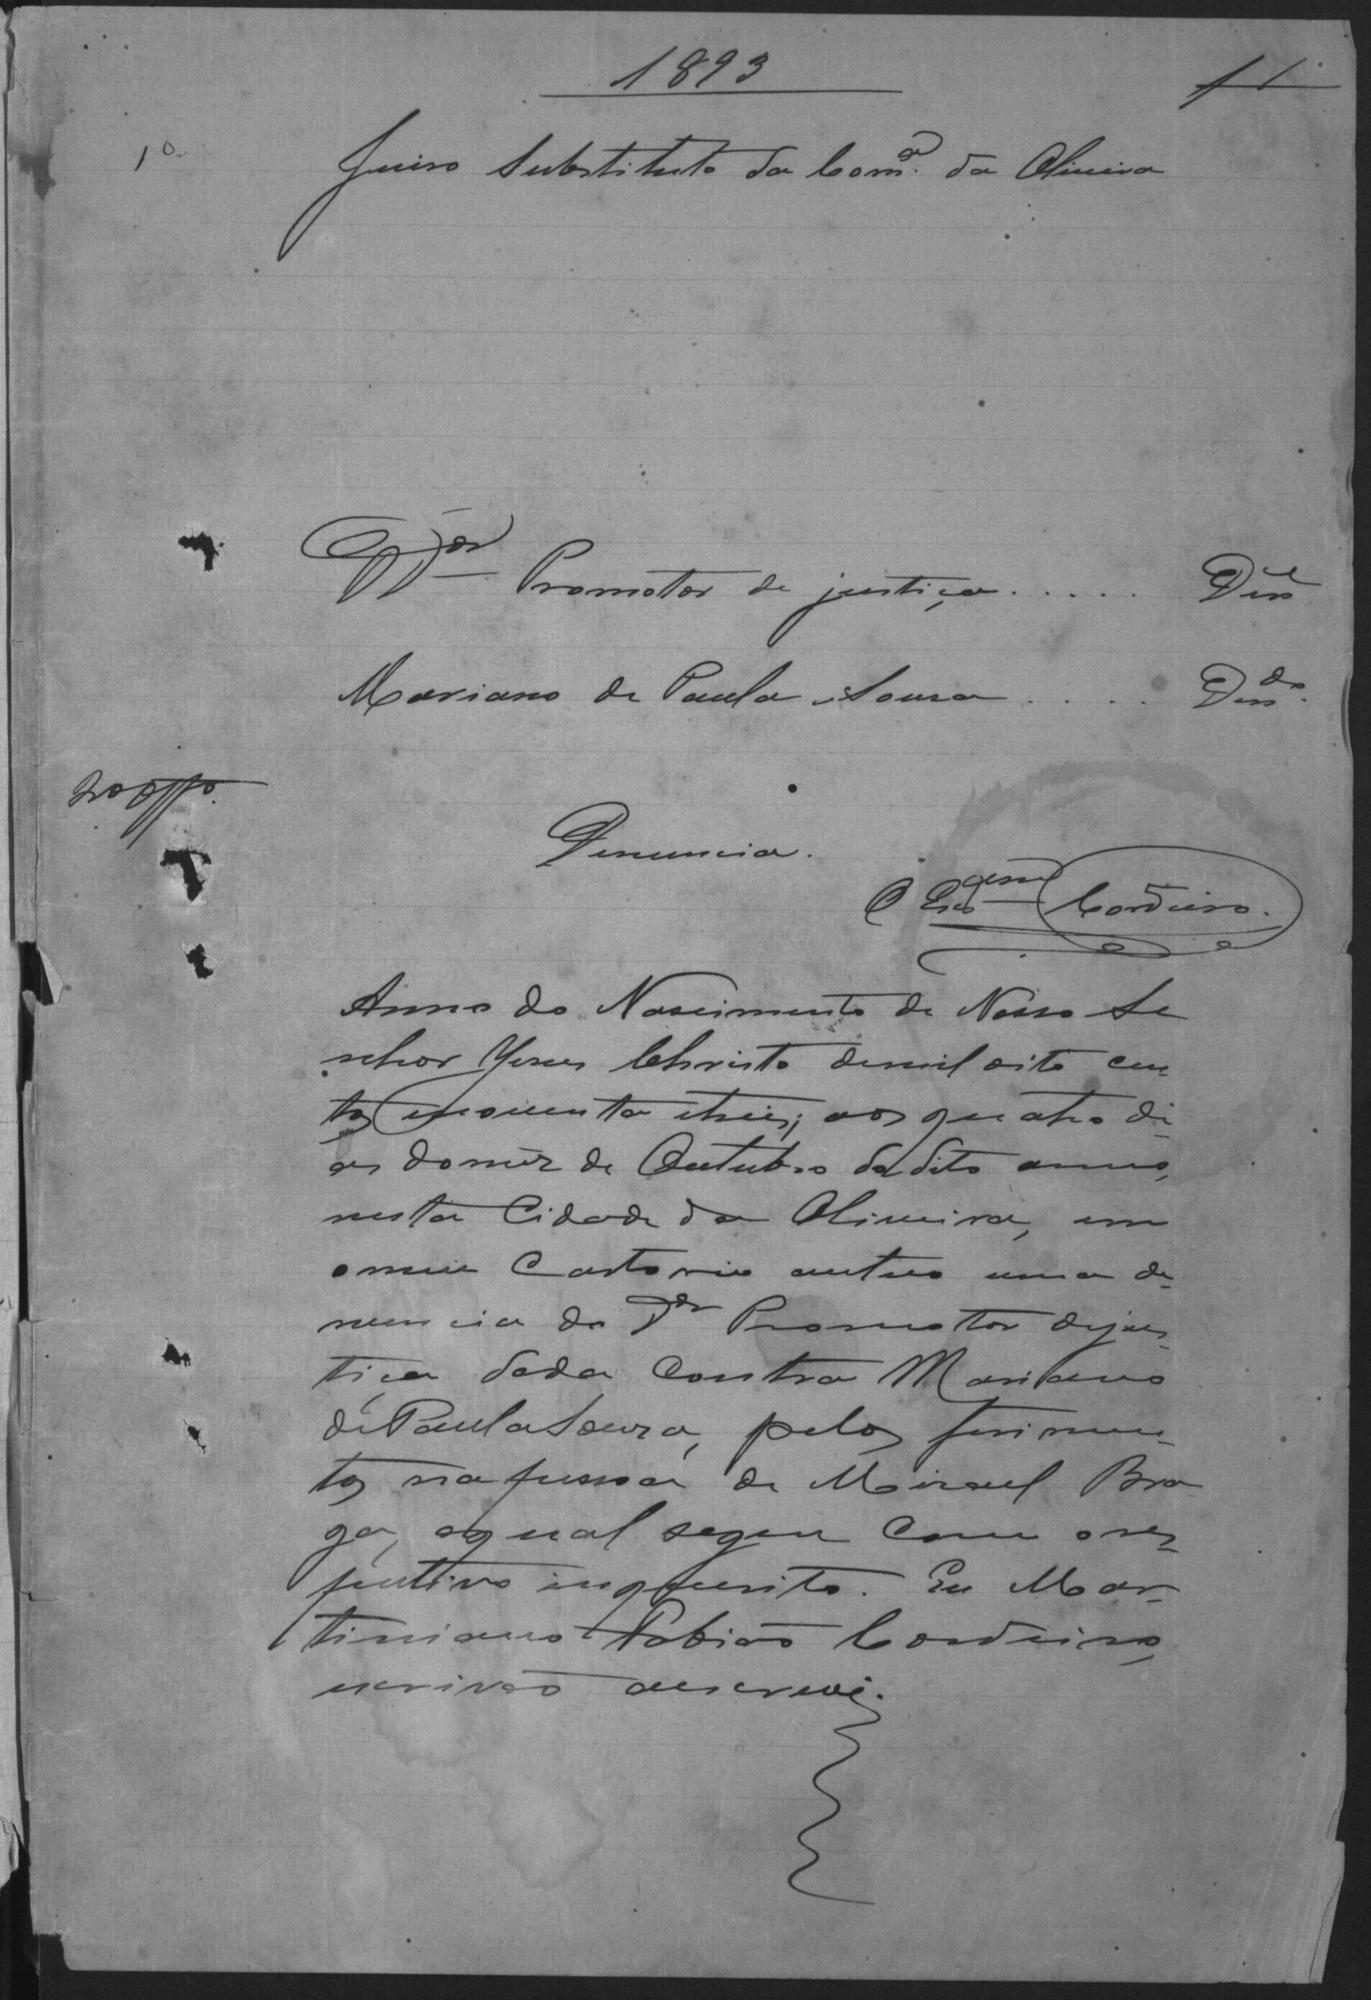 1893
1º
Juiso Substituto da Com.ª da Oliveira
Dor Promotor de justiça..... Dente
Mariano de Paula Sousa..... Dendo.
Denuncia.
O Escam Cordeiro.
Anno do Nascimento de Nosso Se
nhor Yesus Christo demil oito cen
tos enoventa etrêis; aos quatro di-
as domêz de Outubro do dito anno,
nesta Cidade da Oliveira, em
omeu Cartorio autuo uma de-
nuncia do Dr Promotor dejus-
tiça dada contra Mariano
de Paula Souza, pelos ferimen-
tos napessoa de Misael Bra
ga, aqual segue com ores-
pectivo inquerito. Eu Mar-
tiniano Fabião Cordeiro,
escrivão aescrevi.